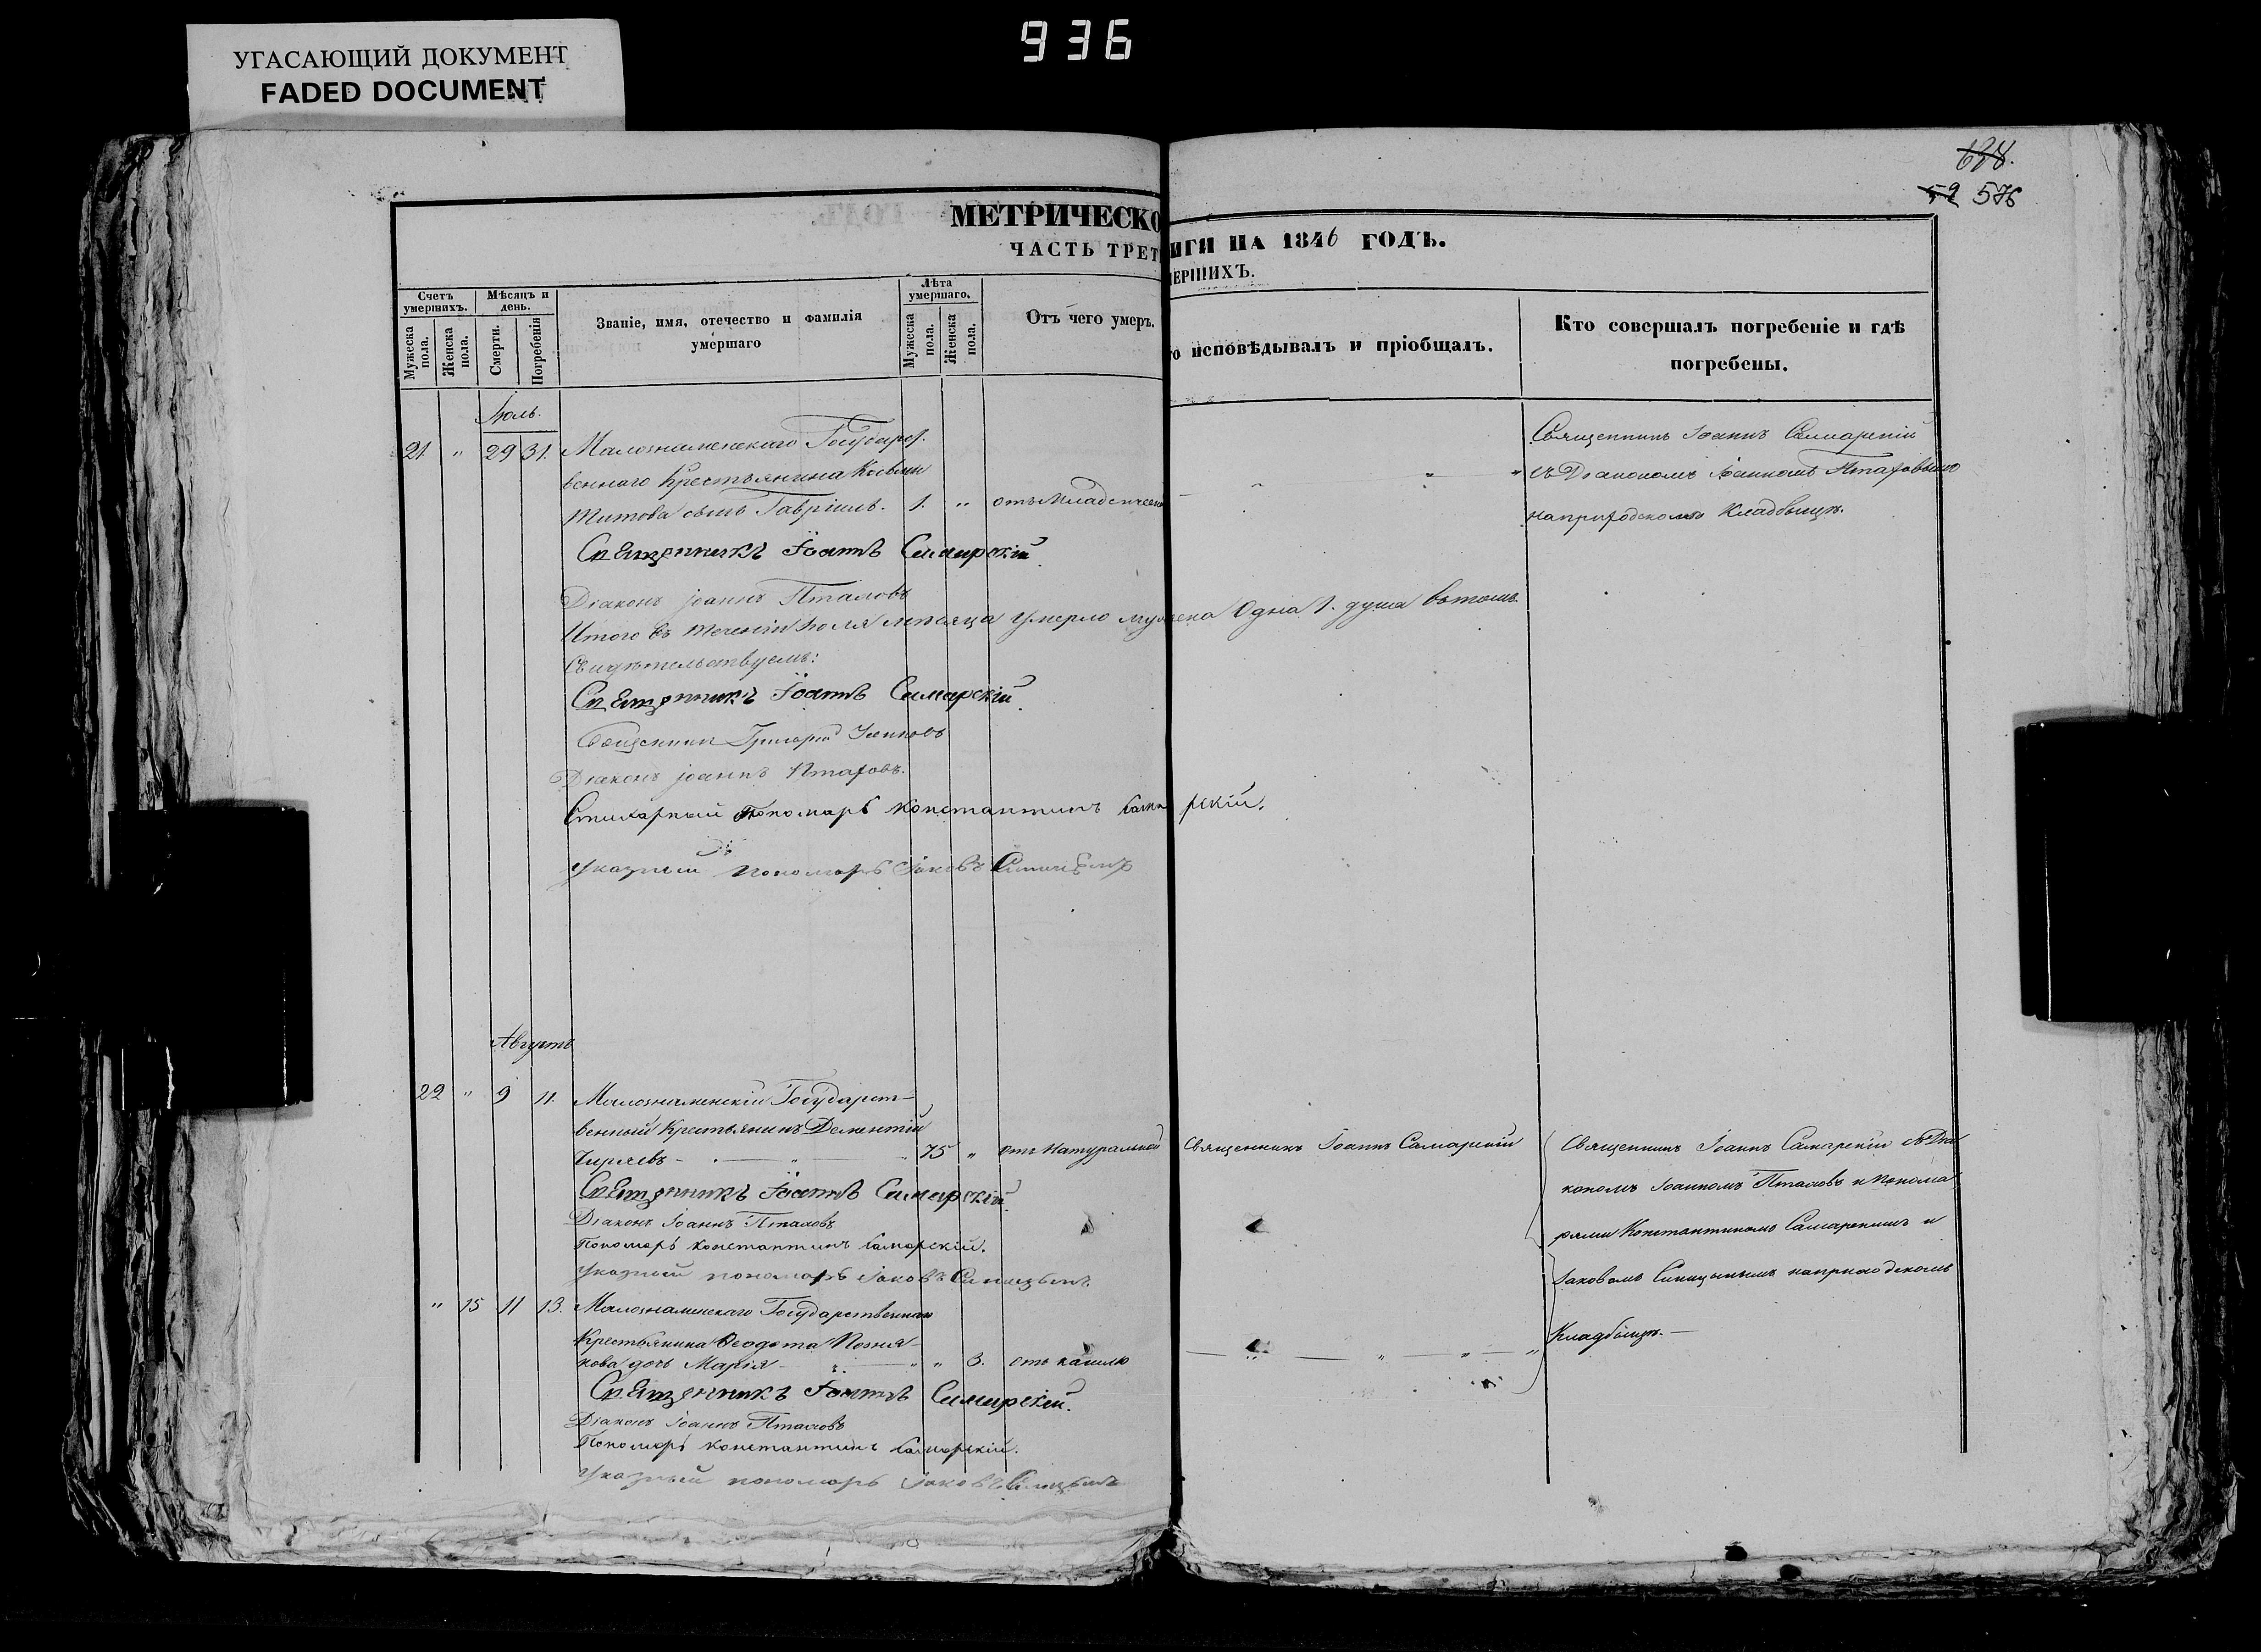 936
УГАСАЮЩИЙ ДОКУМЕНТ
FADED DOCUMENT
628.
59 576
МЕТРИЧЕСКО
ИГИ НА 1846 ГОДЪ.
ЧАСТЬ ТРЕТ
МЕРШИХЪ.
Счетъ умершихъ.
Мѣсяцъ и день.
Званіе, имя, отечество и фамилія умершаго
Лѣта умершаго.
Отъ чего умеръ.
то исповѣдывалъ и пріобщалъ.
Кто совершалъ погребеніе и гдѣ погребены.
Мужеска пола.
Женска пола.
Смерти.
Погребенія
Мужеска пола.
Женска пола.
Іюль.
21. " 29 31. Малознаменскаго Государст-
веннаго Крестьянина
Титова сынъ Гавріилъ. 1. " отъ Младенческ
Священникъ Іоаннъ Самарскій
съ Діакономъ Іоанномъ
на приходскомъ Кладбищѣ.
Священникъ Іоаннъ Самарскій
Діаконъ Іоаннъ Пталовъ
Итого въ теченіи Іюля мѣсяца умерло мужеска Одна 1. душа въ томъ
Свидѣтельствуемъ:
Священникъ Іоаннъ Самарскій
Священникъ Григорій
Діаконъ Іоаннъ
Стихарный Пономарь Константинъ Самарскій.
Указный пономарь Іаковъ Синицынъ
Августъ
22 " 9 11. Малознаменскій Государст-
венный Крестьянинъ Дементій
Чиряевъ - 75 " Отъ Натуральной Священникъ Іоаннъ Самарскій
Священникъ Іоаннъ Самарскій съ Діа
кономъ Іоанномъ Пталовъ и Понома
рями Константиномъ Самарскимъ и
Іаковомъ Синицынымъ на приходскомъ
Кладбищѣ. -
Священникъ Іоаннъ Самарскій
Діаконъ Іоаннъ Пталовъ
Пономарь Константинъ Самарскій.
Указный пономарь Іаковъ Синицынъ
" 15 11 13. Малознаменскаго Государственнаго
Крестьянина Ѳеодота Позня-
кова дочь Марія - " 3. отъ кашлю
Священникъ Іоаннъ Самарскій.
Діаконъ Іоаннъ Пталовъ
Пономарь Константинъ Самарскій.
Указный пономарь Іаковъ Синицынъ